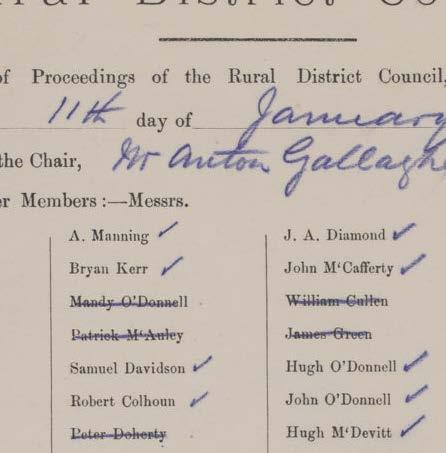 of Proceedings of the Rural District Council,
11th day of January
the Chair, Mr Anton Gallaghe
er Members :—Messrs.
A. Manning ✓
Bryan Kerr ✓
Mandy O'Donnell
Patrick M'Auley
Samuel Davidson ✓
Robert Colhoun ✓
Peter Doherty
J. A. Diamond ✓
John M'Cafferty ✓
William Cullen
James Green
Hugh O'Donnell ✓
John O'Donnell ✓
Hugh M'Devitt ✓